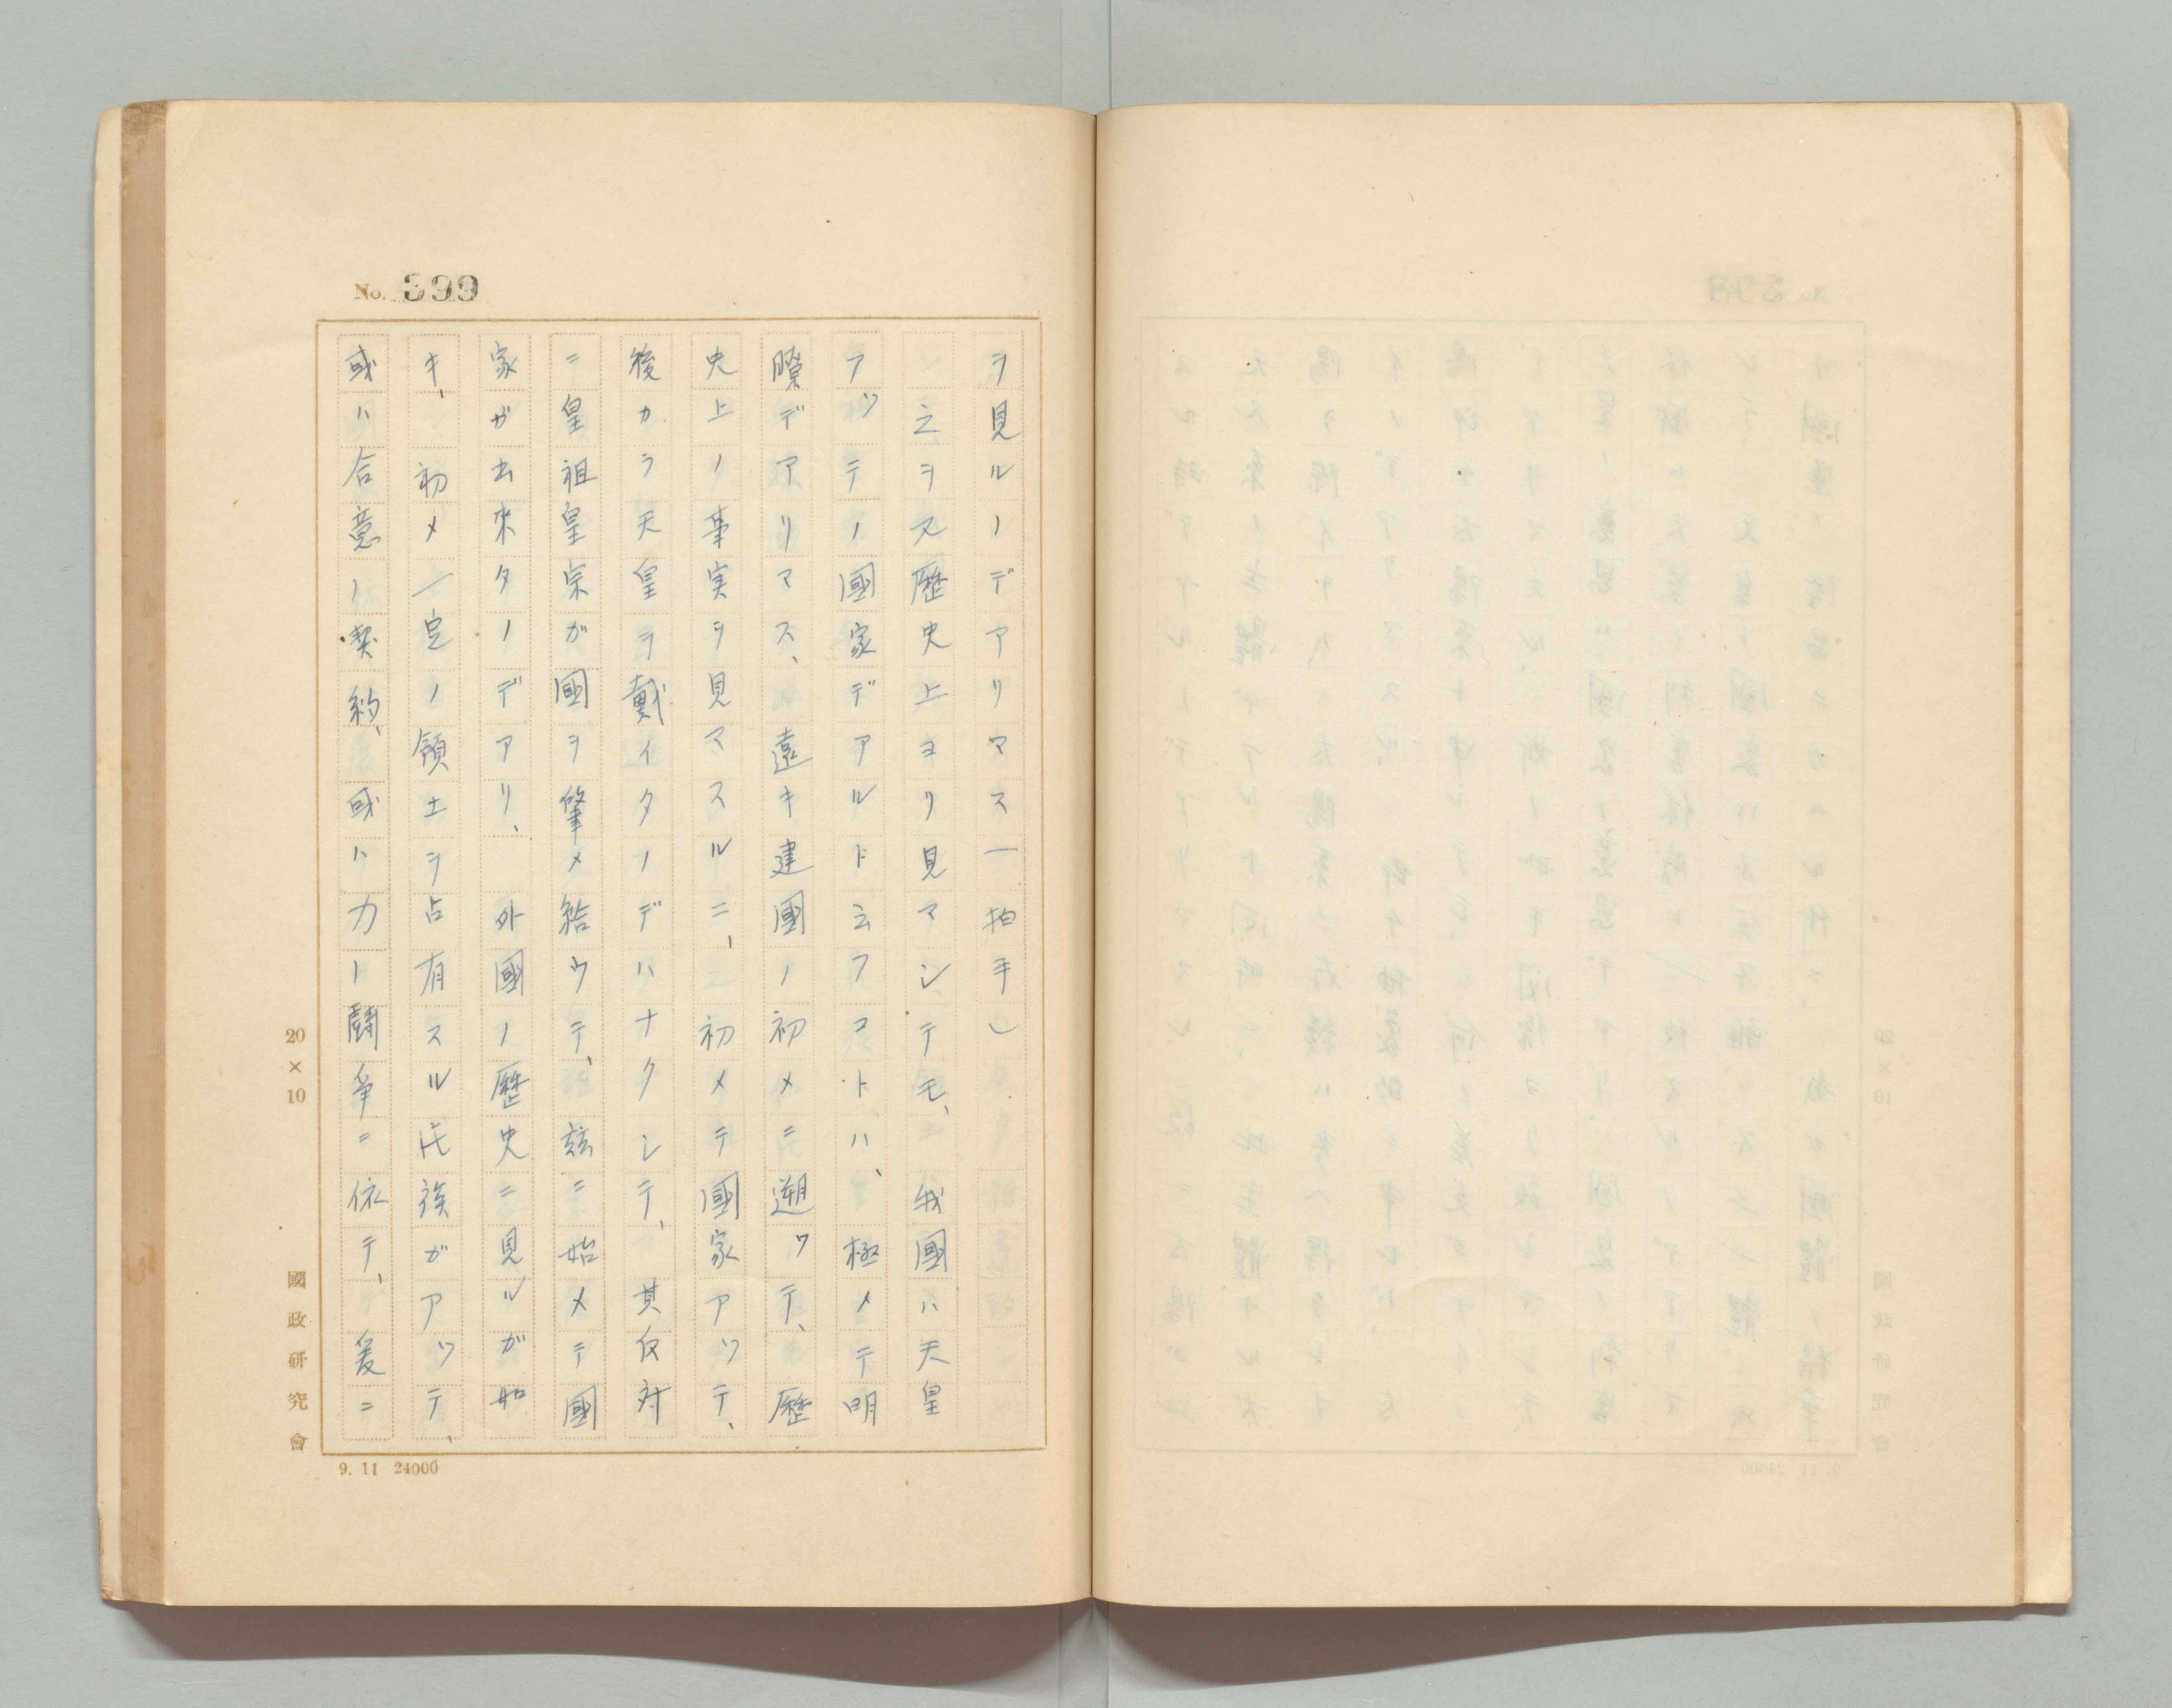 No. 399
ヲ見ルノデアリマス(拍手)
之ヲ又歴史上ヨリ見マシテモ、我國ハ天皇
アツテノ國家デアルト云フコトハ、極メテ明
瞭デアリマス、遠キ建國ノ初メニ遡ツテ、歴
史上ノ事実ヲ見マスルニ、初メテ國家アツテ、
後カラ天皇ヲ戴イタノデハナクシテ、其反対
ニ皇祖皇宗ガ國ヲ肇メ給ウテ、玆ニ始メテ國
家ガ出来タノデアリ、外國ノ歴史ニ見ルガ如
キ、初メ一定ノ領土ヲ占有スル氏族ガアツテ、
或ハ合意ノ契約、或ハ力ノ闘争ニ依テ、爰ニ
20×10
國政研究會
9. 11 24000